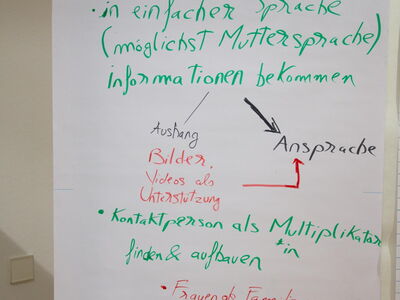 • in einfacher Sprache
(möglichst Muttersprache)
informationen bekommen
Aushang
Ansprache
Bilder,
Videos als
Unterstützung
• Kontaktperson als Multiplikator
*in
finden & aufbauen
• Frauen